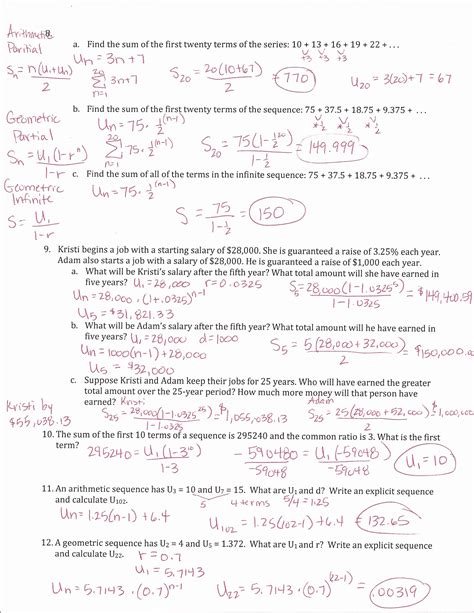 Arithmetic 8.
Partial
a. Find the sum of the first twenty terms of the series: 10 + 13 + 16 + 19 + 22 + ...
+3 +3 +3
Un = 3n+7
Sn = n(U1+Un)/2
20 Σ n=1 3n+7
S20 = 20(10+67)/2 = 770
U20 = 3(20)+7 = 67
b. Find the sum of the first twenty terms of the sequence: 75 + 37.5 + 18.75 + 9.375 + ...
Geometric
Partial
Un = 75 · 1/2^(n-1)
×1/2 ×1/2 ×1/2
Sn = U1(1-r^n)/1-r
20 Σ n=1 75 · 1/2^(n-1)
S20 = 75(1-1/2^20)/1-1/2 = 149.999
c. Find the sum of all of the terms in the infinite sequence: 75 + 37.5 + 18.75 + 9.375 + ...
Geometric
Infinite
Un = 75 · 1/2^(n-1)
S = U1/1-r
S = 75/1-1/2 = 150
9. Kristi begins a job with a starting salary of $28,000. She is guaranteed a raise of 3.25% each year.
Adam also starts a job with a salary of $28,000. He is guaranteed a raise of $1,000 each year.
a. What will be Kristi's salary after the fifth year? What total amount will she have earned in
five years? U1 = 28,000 r = 0.0325
S5 = 28,000(1-1.0325^5)/1-1.0325 = $149,400.59
Un = 28,000 · (1+.0325)^n-1
U5 = $31,821.33
b. What will be Adam's salary after the fifth year? What total amount will he have earned in
five years? U1 = 28,000 d = 1000
Un = 1000(n-1) + 28,000
S5 = 5(28,000 + 32,000)/2 = $150,000.00
U5 = $32,000
c. Suppose Kristi and Adam keep their jobs for 25 years. Who will have earned the greater
total amount over the 25-year period? How much more money will that person have
earned? Kristi Adam
Kristi by
$55,038.13
S25 = 28,000(1-1.0325^25)/1-1.0325 = $1,055,038.13
S25 = 25(28,000 + 52,000)/2 $1,000,000
10. The sum of the first 10 terms of a sequence is 295240 and the common ratio is 3. What is the first
term?
295240 = U1(1-3^10)/1-3
-590480/-59048 = U1(-59048)/-59048
U1 = 10
11. An arithmetic sequence has U3 = 10 and U7 = 15. What are U1 and d? Write an explicit sequence
and calculate U102.
5
4 terms 5/4 = 1.25
Un = 1.25(n-1) + 6.4
U102 = 1.25(102-1) + 6.4 = 132.65
12. A geometric sequence has U2 = 4 and U5 = 1.372. What are U1 and r? Write an explicit sequence
and calculate U22.
r = 0.7
U1 = 5.7143
Un = 5.7143 · (0.7)^n-1
U22 = 5.7143 · (0.7)^(22-1) = .00319